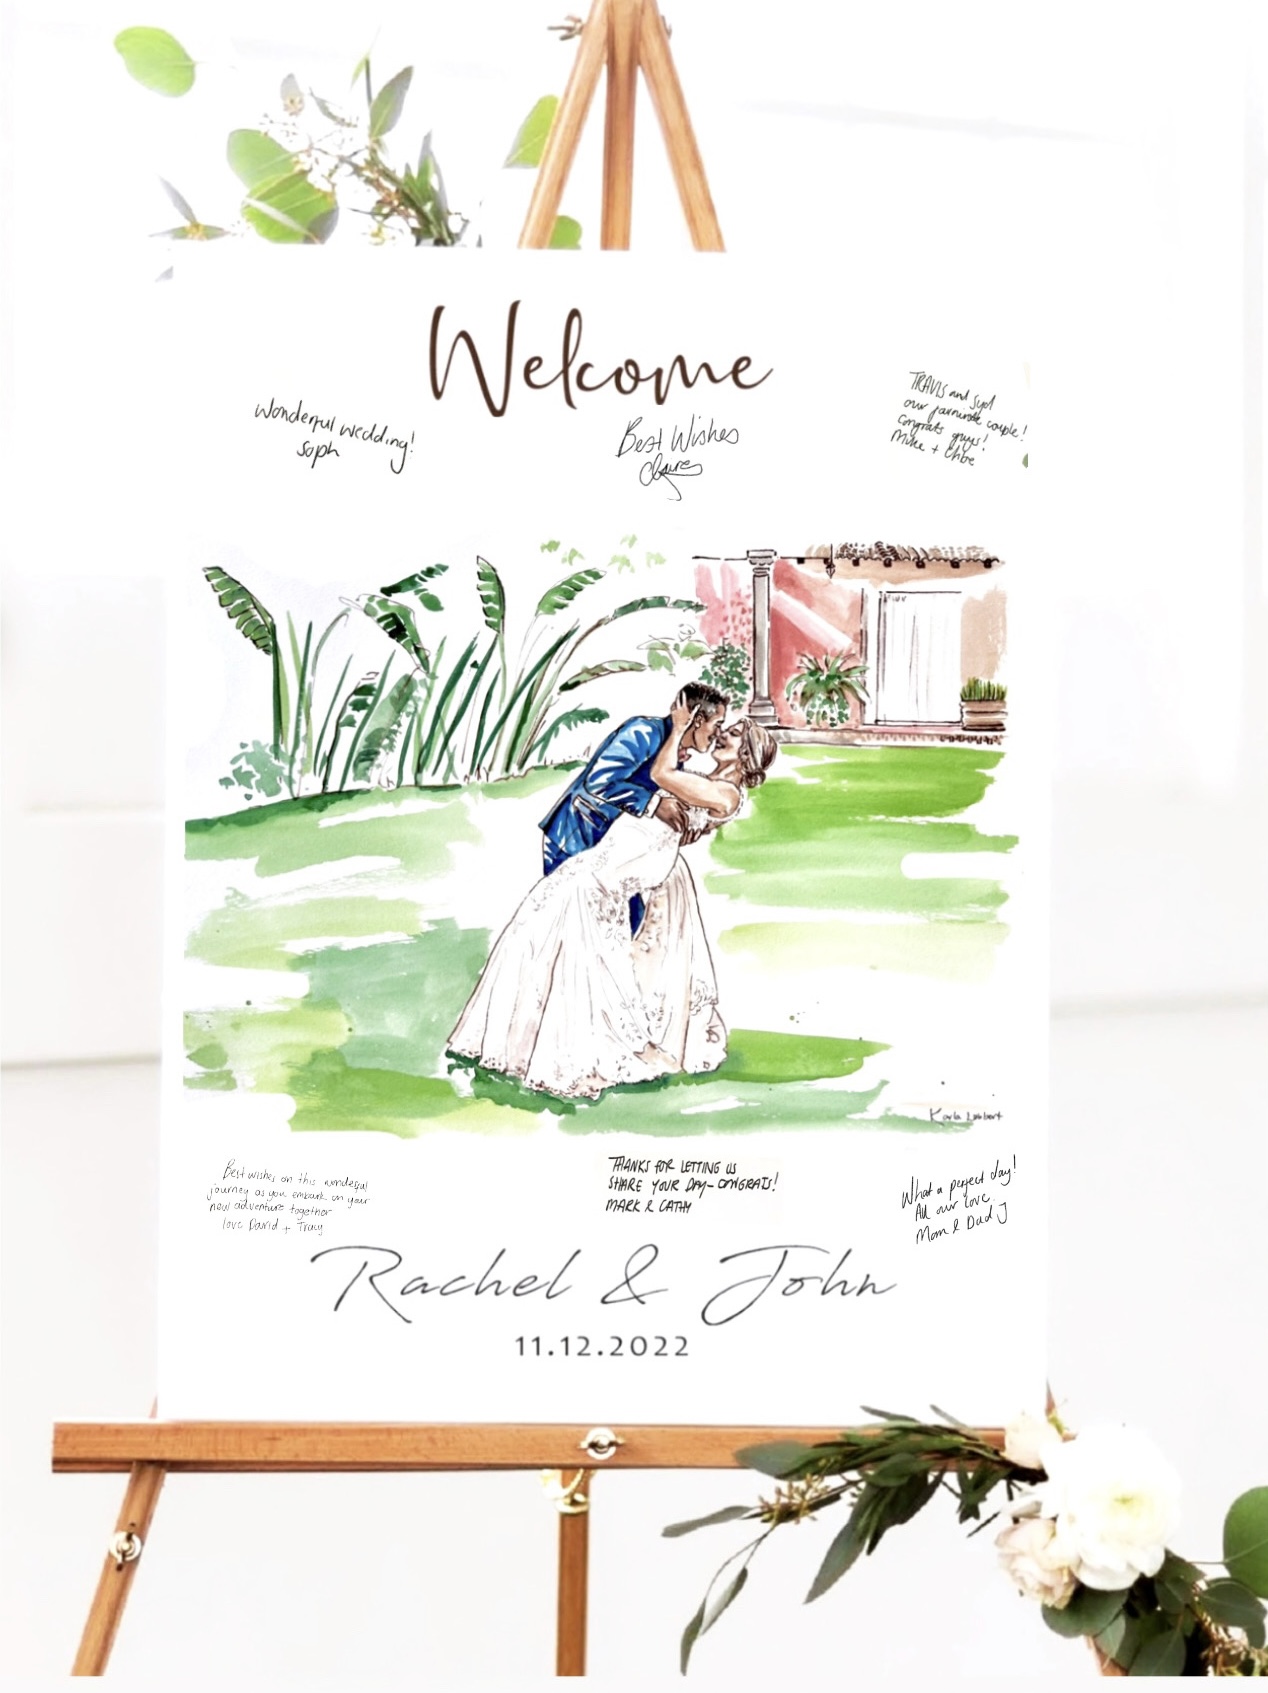 Welcome
Wonderful wedding!
Soph
Best Wishes
Claire
TRAVIS and Syd
our favourite couple!
Congrats guys!
Mike + Chloe
Karla Lambert
Best wishes on this wonderful
journey as you embark on your
new adventure together
love David + Tracy
THANKS FOR LETTING US
SHARE YOUR DAY - CONGRATS!
MARK & CATHY
What a perfect day!
All our love
Mom & Dad J
Rachel & John
11.12.2022